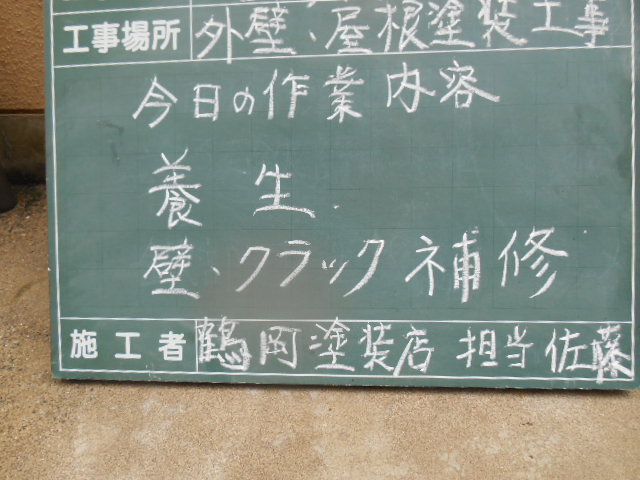 工事場所 外壁、屋根塗装工事
今日の作業内容
養生
壁、クラック補修
施工者 鶴岡塗装店 担当佐藤